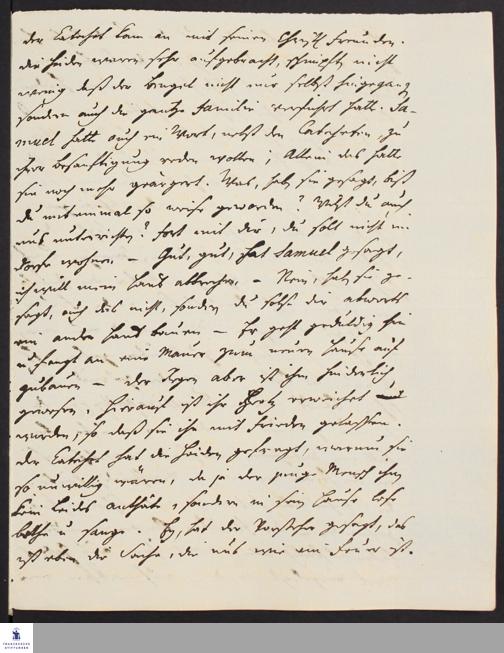 der Catechet kam an mit seinen Christl. Freunden.
die Heiden waren sehr aufgebracht, schmähten nicht
wenig daß der Bengel nicht nur selbst hingegang
sondern auch die gantze Familie verführt hatte. Sa-
muel hatte auch ein Wort, nebst den Catecheten, zu
ihrer Besänftigung reden wollen; Allein das hatte
sie noch mehr geärgert. Was, hab. sie gesagt, bist
du miteinmal so weise geworden? Wilst du auch
uns unterrichten? fort mit dir, du solt nicht im
Dorfe wohnen. – Gut, gut, hat Samuel gesagt,
ich will mein Haus abbrechen. – Nein, hab. sie ge-
sagt, auch das nicht, sondern du solst dir abwerts
ein ander Haus bauen – Er geht geduldig hin
u fangt an eine Mauer zum neuen Hause auf
zubauen – der Regen aber ist ihm hinderlich
gewesen. Hierauf ist ihr Hertz erweichet
worden, so daß sie ihn mit Frieden gelassen.
der Catechet hat die Heiden gefragt, warum sie
so unwillig wären, da ja der junge Mensch ihnen
kein Leides anthäte, sondern in sein Hause lese
bethe u sange. Ey, hat der Vorsteher gesagt, das
ist eben die Sache, die uns wie ein Feuer ist.
FRANCKESCHE
STIFTUNGEN